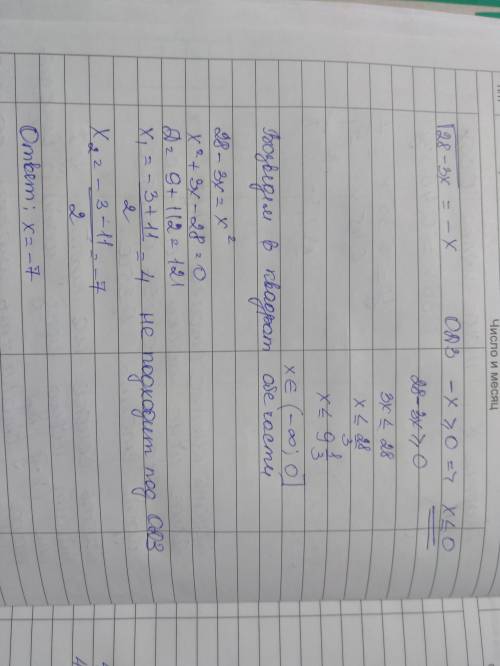 Число и месяц
√28-3x = -x ОДЗ -x ≥ 0 => x ≤ 0
28-3x ≥ 0
3x ≤ 28
x ≤ 28/3
x ≤ 9 1/3
x ∈ (-∞; 0]
Возведем в квадрат обе части
28-3x = x²
x²+3x-28=0
D= 9+112=121
x₁ = (-3+11)/2 = 4 не подходит под ОДЗ
x₂ = (-3-11)/2 = -7
Ответ: x=-7